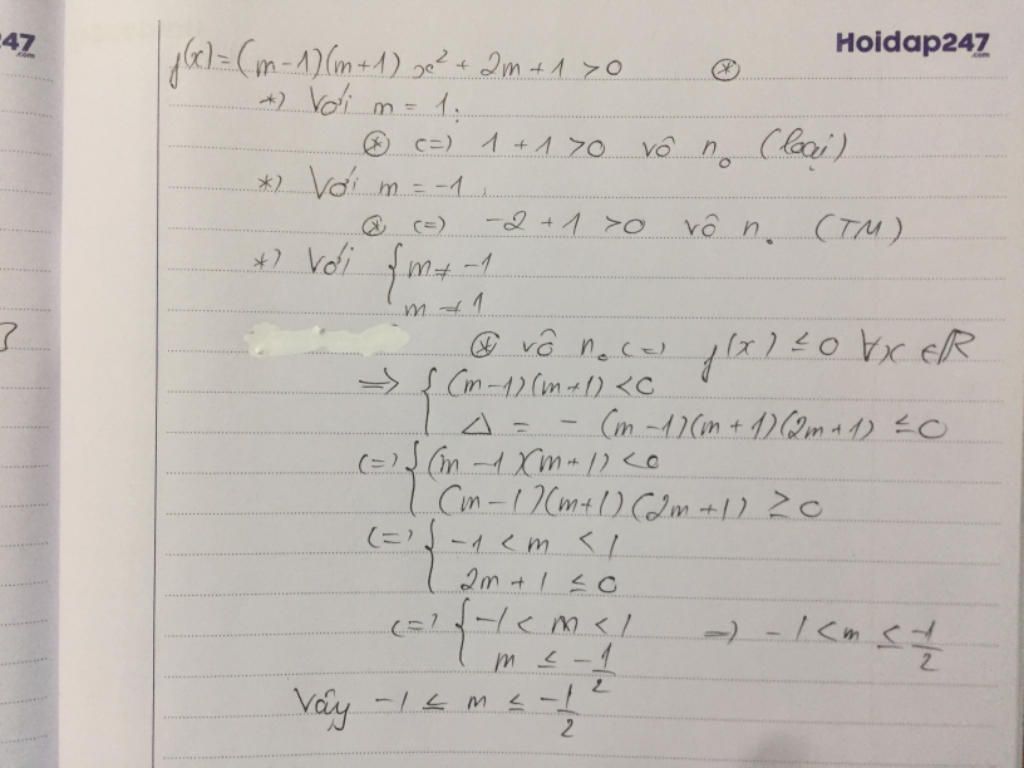 247
.com
Hoidap247
.com
f(x) = (m-1)(m+1)x² + 2m + 1 > 0 ⊛
*) Với m = 1:
⊛ (=) 1 + 1 > 0 vô n₀ (loại)
*) Với m = -1
⊛ (=) -2 + 1 > 0 vô n₀ (TM)
*) Với { m ≠ -1
m ≠ 1
⊛ vô n₀ (=) f(x) ≤ 0 ∀x ∈ R
=> { (m-1)(m+1) < 0
Δ = - (m-1)(m+1)(2m+1) ≤ 0
(=) { (m-1)(m+1) < 0
(m-1)(m+1)(2m+1) ≥ 0
(=) { -1 < m < 1
2m + 1 ≤ 0
(=) { -1 < m < 1 => -1 < m ≤ -1/2
m ≤ -1/2
Vây -1 ≤ m ≤ -1/2